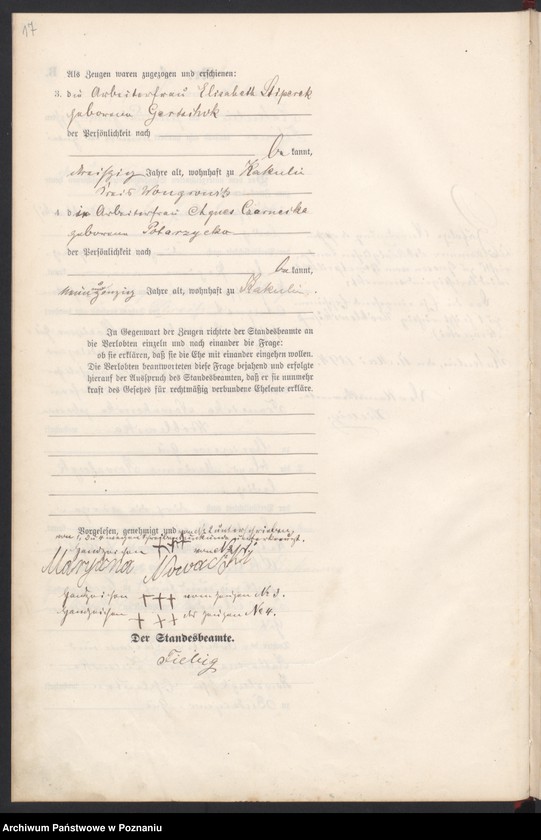 17
Als Zeugen waren zugezogen und erschienen:
3. die Arbeiterfrau Elisabeth Stiperek
geborene
der Persönlichkeit nach
be kannt,
dreißig Jahre alt, wohnhaft zu Kakulin
Kreis Wongrowitz
4. die Arbeiterfrau Agnes Czarnecka
geborene Potarzycka
der Persönlichkeit nach
be kannt,
neunundzwanzig Jahre alt, wohnhaft zu Kakulin.
In Gegenwart der Zeugen richtete der Standesbeamte an
die Verlobten einzeln und nach einander die Frage:
ob sie erklären, daß sie die Ehe mit einander eingehen wollen.
Die Verlobten beantworteten diese Frage bejahend und erfolgte
hierauf der Ausspruch des Standesbeamten, daß er sie nunmehr
kraft des Gesetzes für rechtmäßig verbundene Eheleute erkläre.
Vorgelesen, genehmigt und
Handzeichen +++
Maryana Nowacki
Handzeichen +++ vom Zeugen No 3.
Handzeichen +++ des Zeugen No 4.
Der Standesbeamte.
Fiebig
Archiwum Państwowe w Poznaniu